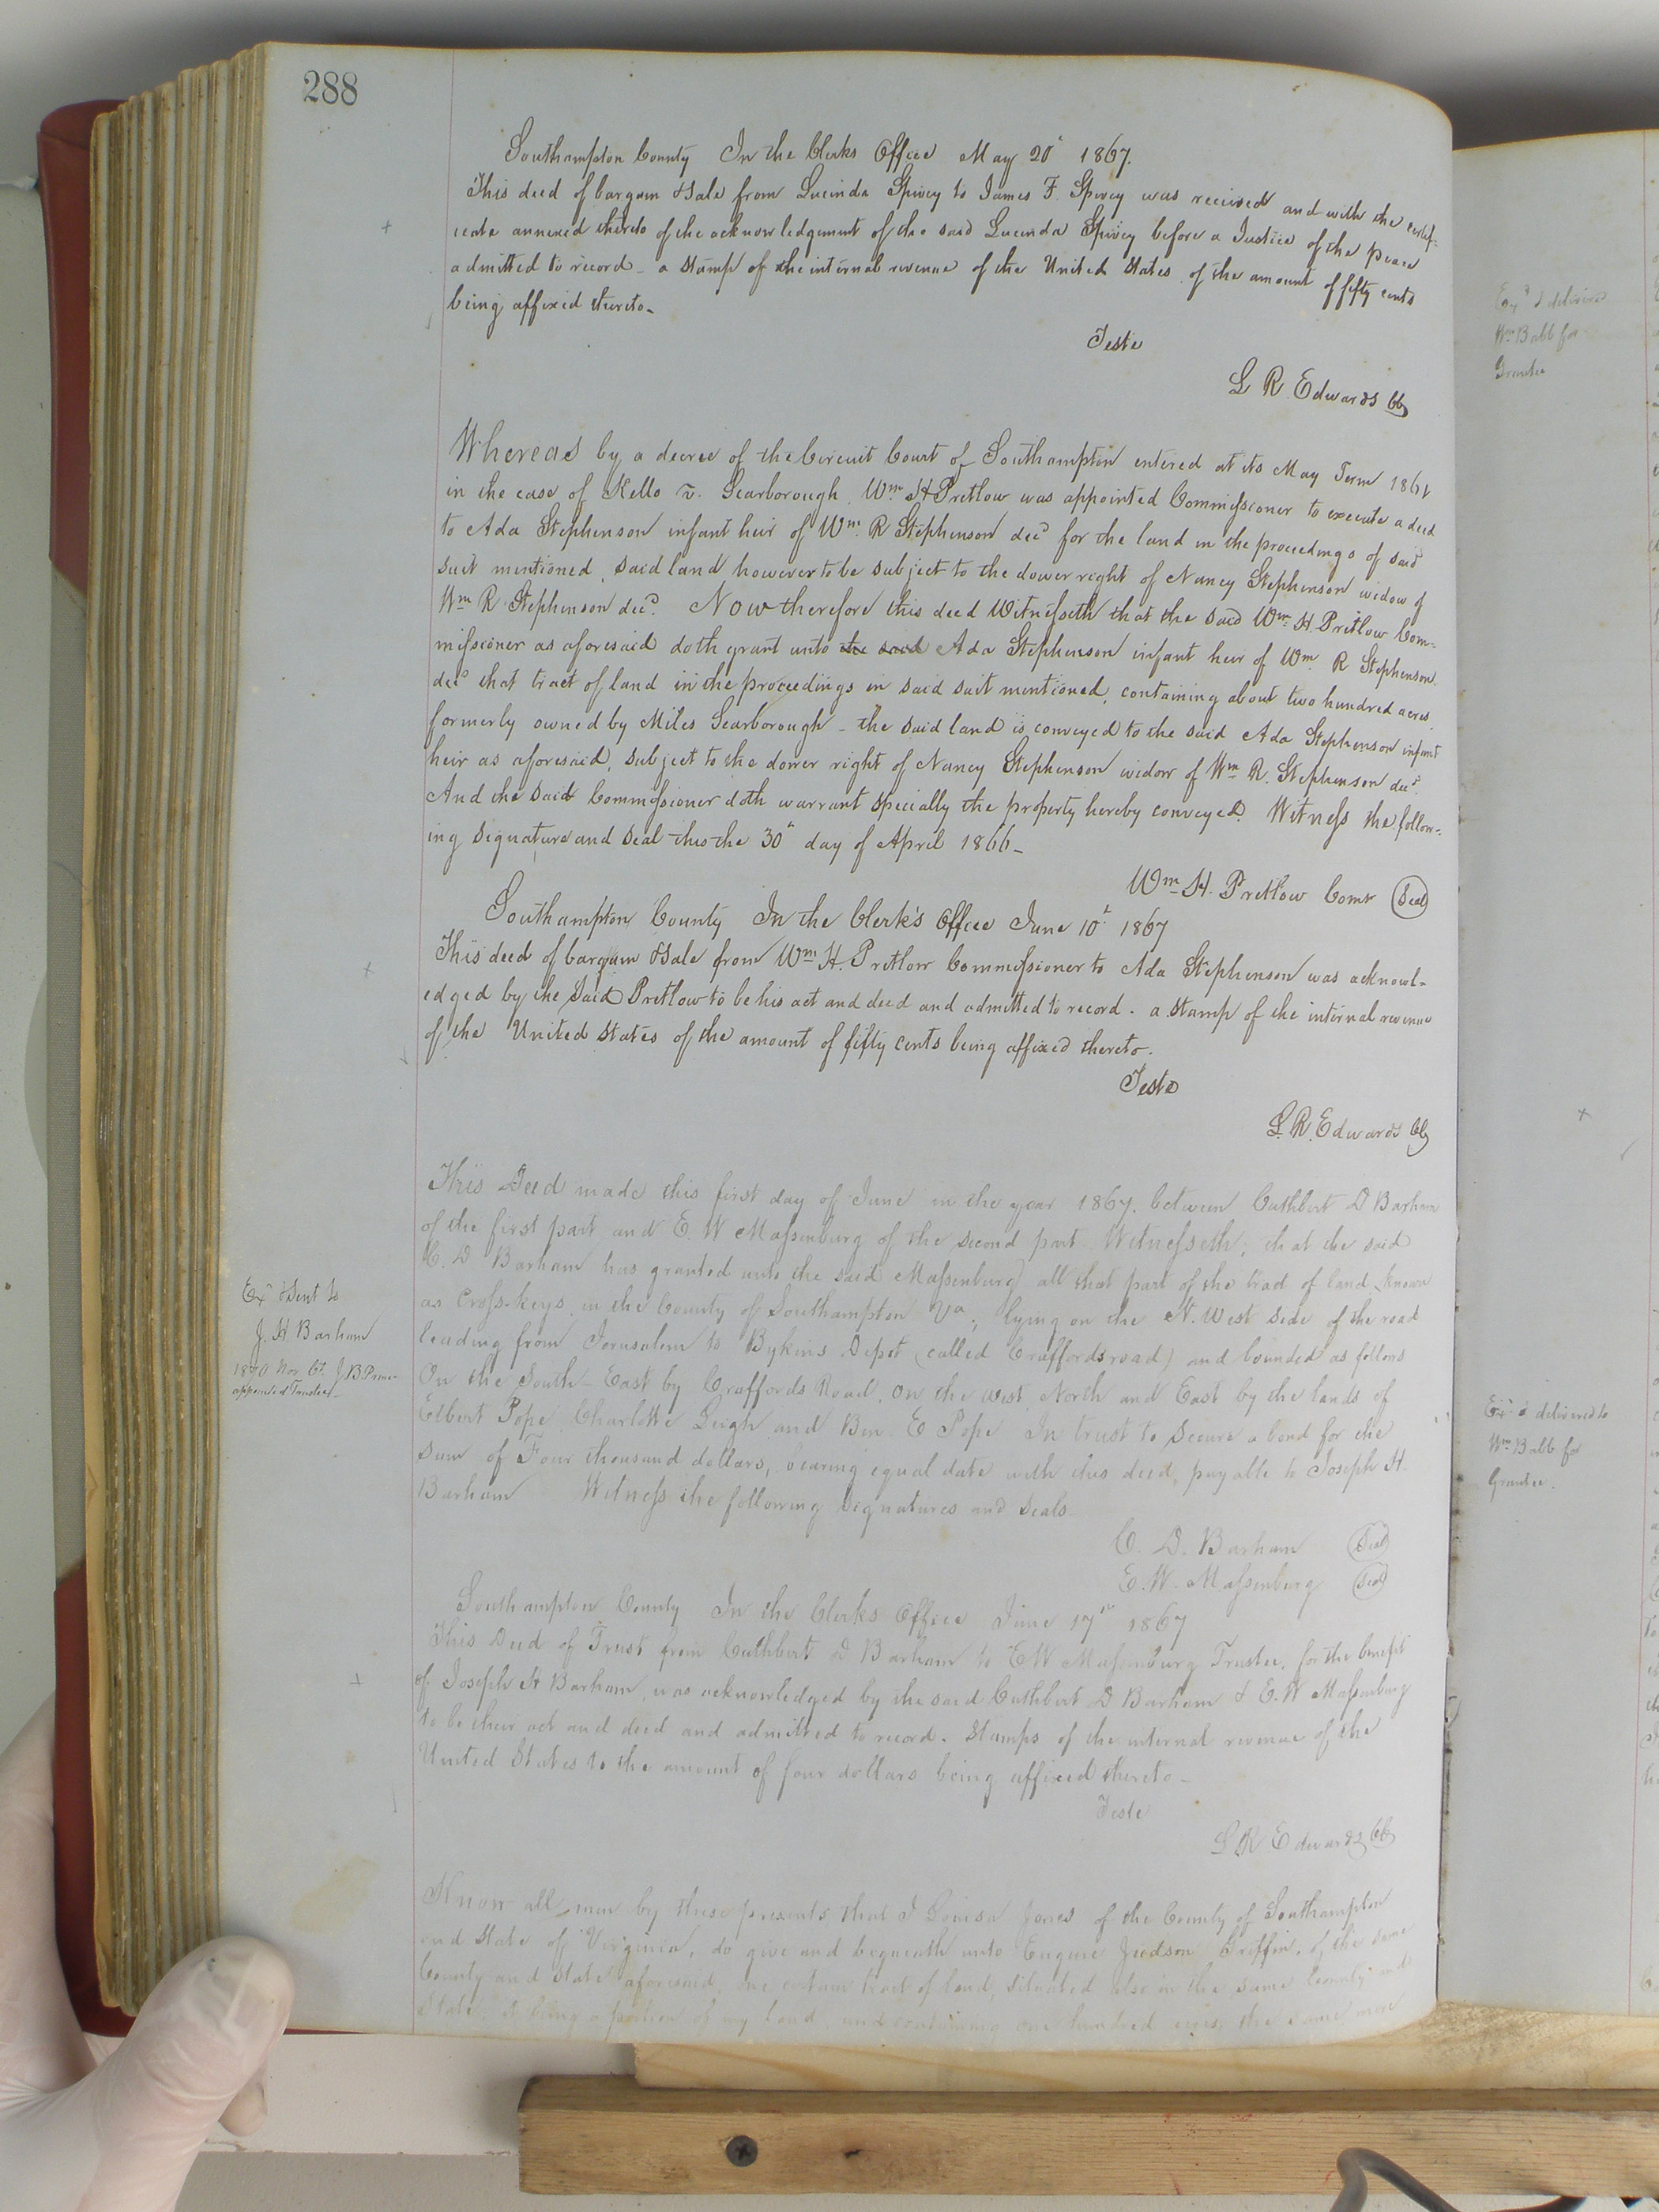 288
Southampton County In the Clerks Office May 20th 1867.
This deed of bargain & sale from Lucinda Spivey to James F. Spivey was received and with the certif-
icate annexed thereto of the acknowledgement of the said Lucinda Spivey before a Justice of the peace
admitted to record - a stamp of the internal revenue of the United States of the amount of fifty cents
being affixed thereto -
Teste
L R Edwards Clk
Whereas by a decree of the Circuit Court of Southampton entered at its May Term 1861
in the case of Kello v. Scarborough Wm H Pretlow was appointed Commissioner to execute a deed
to Ada Stephenson infant heir of Wm. R Stephenson decd for the land in the proceedings of said
suit mentioned, said land however to be subject to the dower right of Nancy Stephenson widow of
Wm R Stephenson decd. Now therefore this deed Witnesseth that the said Wm H. Pretlow Com-
missioner as aforesaid doth grant unto the said Ada Stephenson infant heir of Wm R Stephenson
decd that tract of land in the proceedings in said suit mentioned, containing about two hundred acres
formerly owned by Miles Scarborough - the said land is conveyed to the said Ada Stephenson infant
heir as aforesaid, subject to the dower right of Nancy Stephenson widow of Wm R. Stephenson decd.
And the said Commissioner doth warrant specially the property hereby conveyed. Witness the follow-
ing signature and seal this the 30th day of April 1866 -
Wm H. Pretlow Comr Seal
Southampton County In the Clerk's Office June 10th 1867
This deed of bargain & sale from Wm H. Pretlow Commissioner to Ada Stephenson was acknowl-
edged by the said Pretlow to be his act and deed and admitted to record. a stamp of the internal revenue
of the United States of the amount of fifty cents being affixed thereto.
Teste
L. R. Edwards Clk
This Deed made this first day of June in the year 1867. between Cuthbert D Barham
of the first part and E. W Massenburg of the second part Witnesseth, that the said
C. D Barham has granted unto the said Massenburg all that part of the tract of land known
as Cross-keys in the County of Southampton Va; lying on the N. West side of the road
leading from Jerusalem to Bykins Depot (called Craffords road) and bounded as follows
On the South-East by Craffords Road, on the west, North and East by the lands of
Elbert Pope Charlotte Leigh and Ben. E Pope In trust to secure a bond for the
sum of Four thousand dollars, bearing equal date with this deed, payable to Joseph H.
Barham Witness the following signatures and seals
C. D. Barham Seal
E. W. Massenburg Seal
Southampton County In the Clerks Office June 17th 1867
This Deed of Trust from Cuthbert D Barham to E W Massenburg Trustee, for the benefit
of Joseph H Barham, was acknowledged by the said Cuthbert D Barham & E. W Massenburg
to be their act and deed and admitted to record. Stamps of the internal revenue of the
United States to the amount of four dollars being affixed thereto -
Teste
L R Edwards Clk
Know all men by these presents that I Louisa Jones of the County of Southampton
and State of Virginia, do give and bequeath unto Eugene Judson Griffin, of the same
County and State aforesaid, one certain tract of land, situated also in the same County and
State, it being a portion of my land, and containing one hundred acres, the same more
Exd & sent to
J. H Barham
1870 Nov Ct. J B Prince
appointed Trustee
Exd & delivered
Wm Babb for
Grantee
Exd & delivered to
Wm Babb for
Grantee.